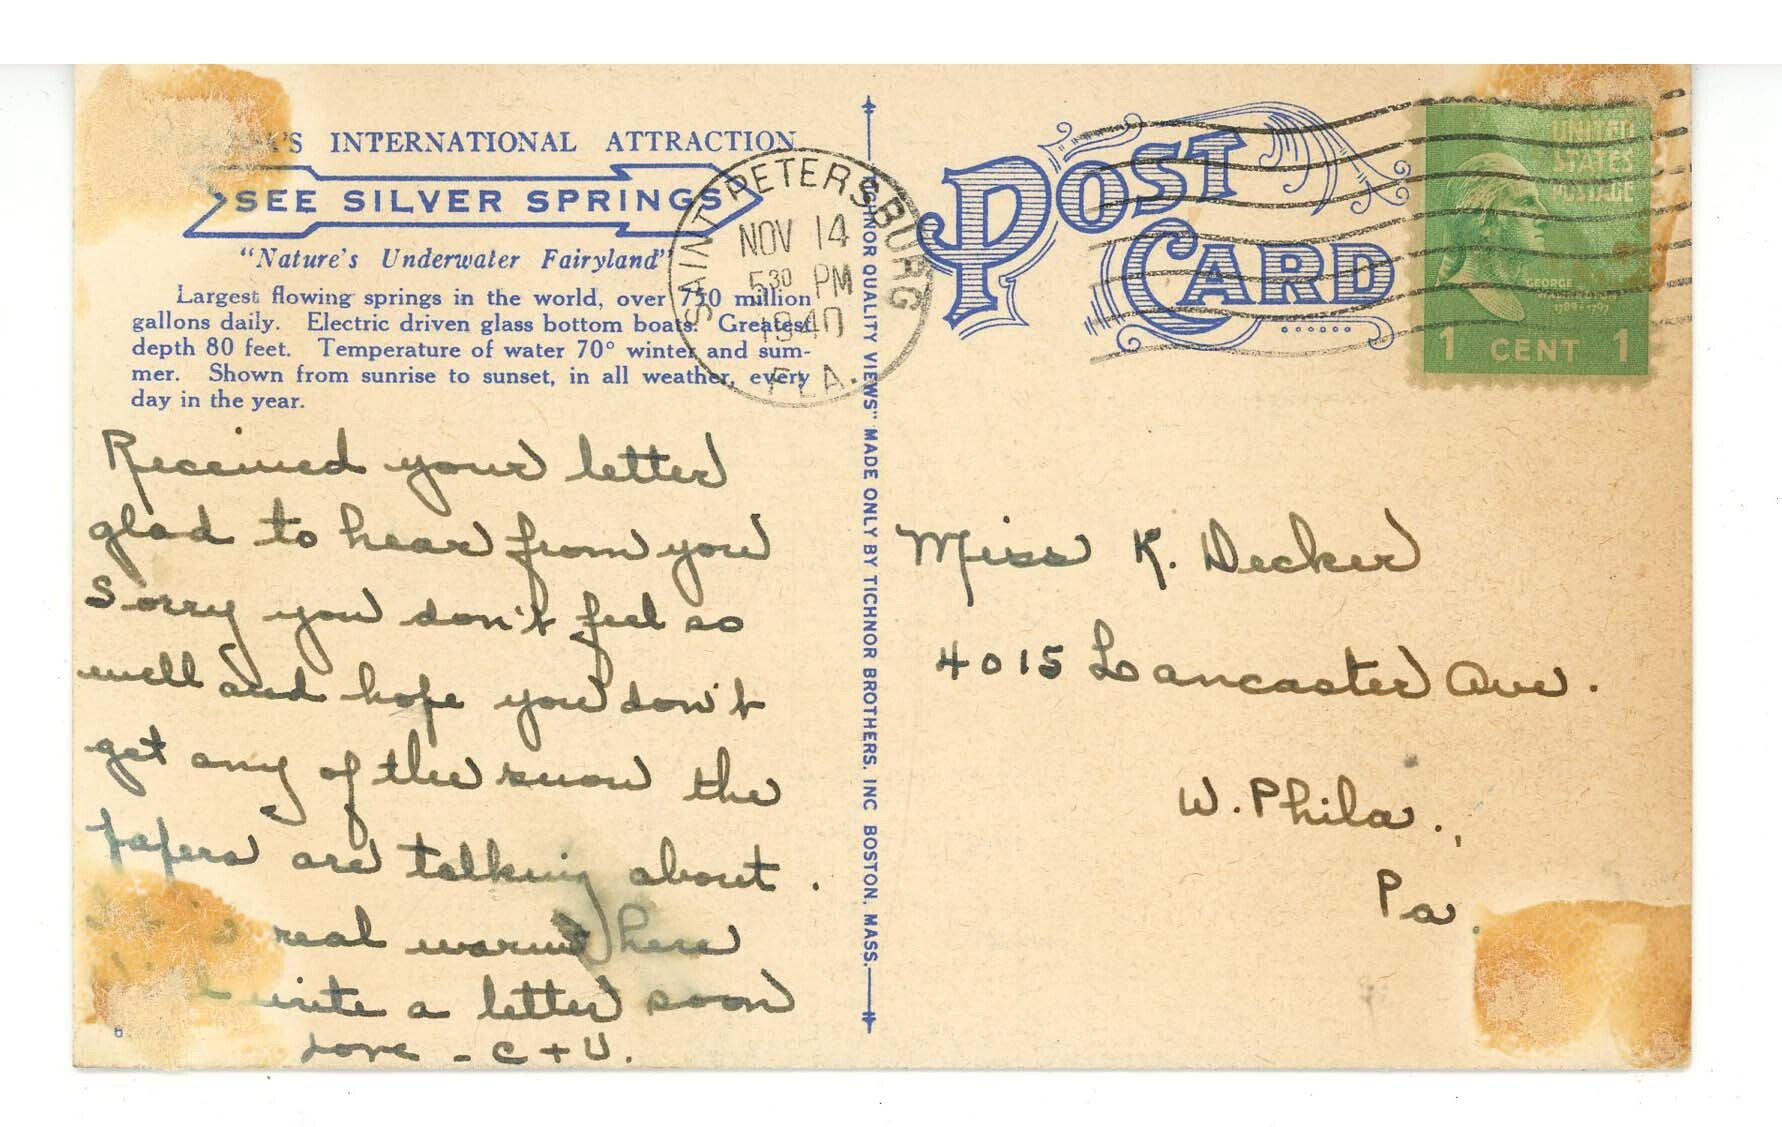 'S INTERNATIONAL ATTRACTION
SEE SILVER SPRINGS
"Nature's Underwater Fairyland"
Largest flowing springs in the world, over 750 million
gallons daily. Electric driven glass bottom boats. Greatest
depth 80 feet. Temperature of water 70° winter and sum-
mer. Shown from sunrise to sunset, in all weather, every
day in the year.
Received your letter
glad to hear from you
Sorry you don't feel so
well and hope you don't
get any of the snow the
papers are talking about.
It is real warm here
write a letter soon
Love - C + V.
6
SAINT PETERSBURG
NOV 14
5 30 PM
1940
FLA.
QUALITY VIEWS" MADE ONLY BY TICHNOR BROTHERS, INC BOSTON, MASS.
POST
CARD
UNITED
STATES
POSTAGE
GEORGE
WASHINGTON
1789-1797
1 CENT 1
Miss K. Decker
4015 Lancaster Ave.
W. Phila.,
Pa.